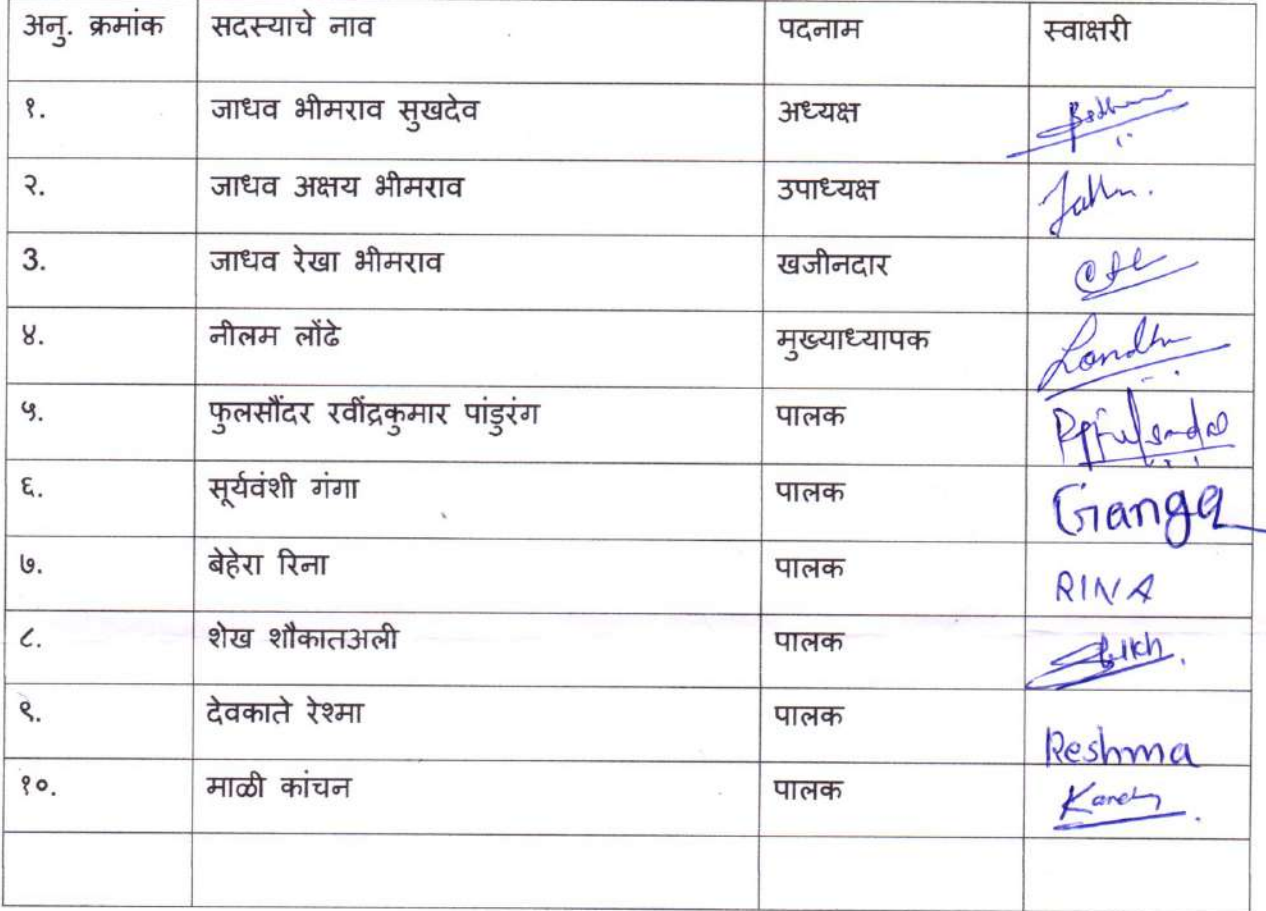 अनु. क्रमांक सदस्याचे नाव पदनाम स्वाक्षरी
१. जाधव भीमराव सुखदेव अध्यक्ष
२. जाधव अक्षय भीमराव उपाध्यक्ष
3. जाधव रेखा भीमराव खजीनदार
४. नीलम लोंढे मुख्याध्यापक
५. फुलसौंदर रवींद्रकुमार पांडुरंग पालक
६. सूर्यवंशी गंगा पालक Ganga
७. बेहेरा रिना पालक RINA
८. शेख शौकातअली पालक
९. देवकाते रेश्मा पालक Reshma
१०. माळी कांचन पालक